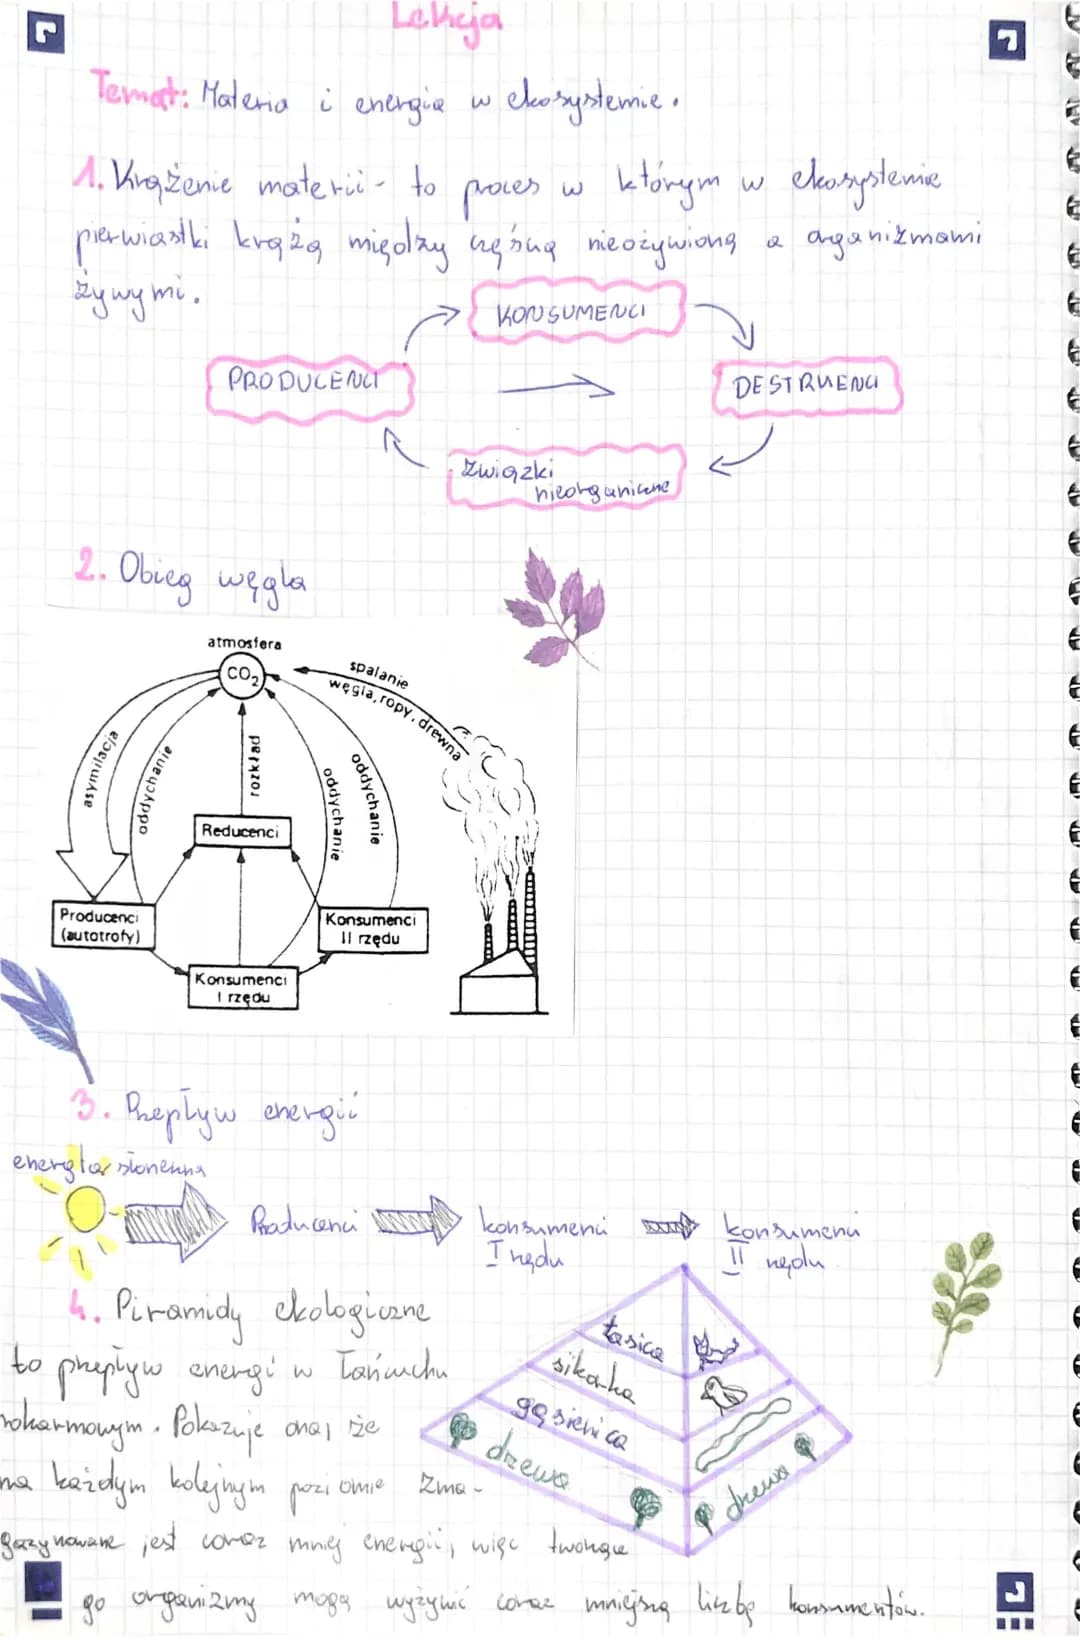 Lekcja
Temat: Materia i energia w ekosystemie.
1. Krążenie materii - to proces w którym w ekosystemie
pierwiastki krążą między częścią nieożywioną a organizmami
żywymi.
KONSUMENCI
PRODUCENCI
DESTRUENCI
Związki
nieorganiczne
2. Obieg węgla
atmosfera
CO2
spalanie
węgla, ropy, drewna
asymilacja
oddychanie
rozkład
oddychanie
oddychanie
Reducenci
Producenci
(autotrofy)
Konsumenci
II rzędu
Konsumenci
I rzędu
3. Przepływ energii
energia słonenna
Producenci
konsumenci
I rzędu
konsumenci
II rzędu
4. Piramidy ekologiczne
to przepływ energi w łańcuchu
pokarmowym. Pokazuje ona, że
na każdym kolejnym poziomie zma-
gazynowane jest coraz mniej energii, więc tworzące
go organizmy mogą wyżywić coraz mniejszą liczbę konsumentów.
łasica
sikorka
gąsienica
drzewa
drzewa